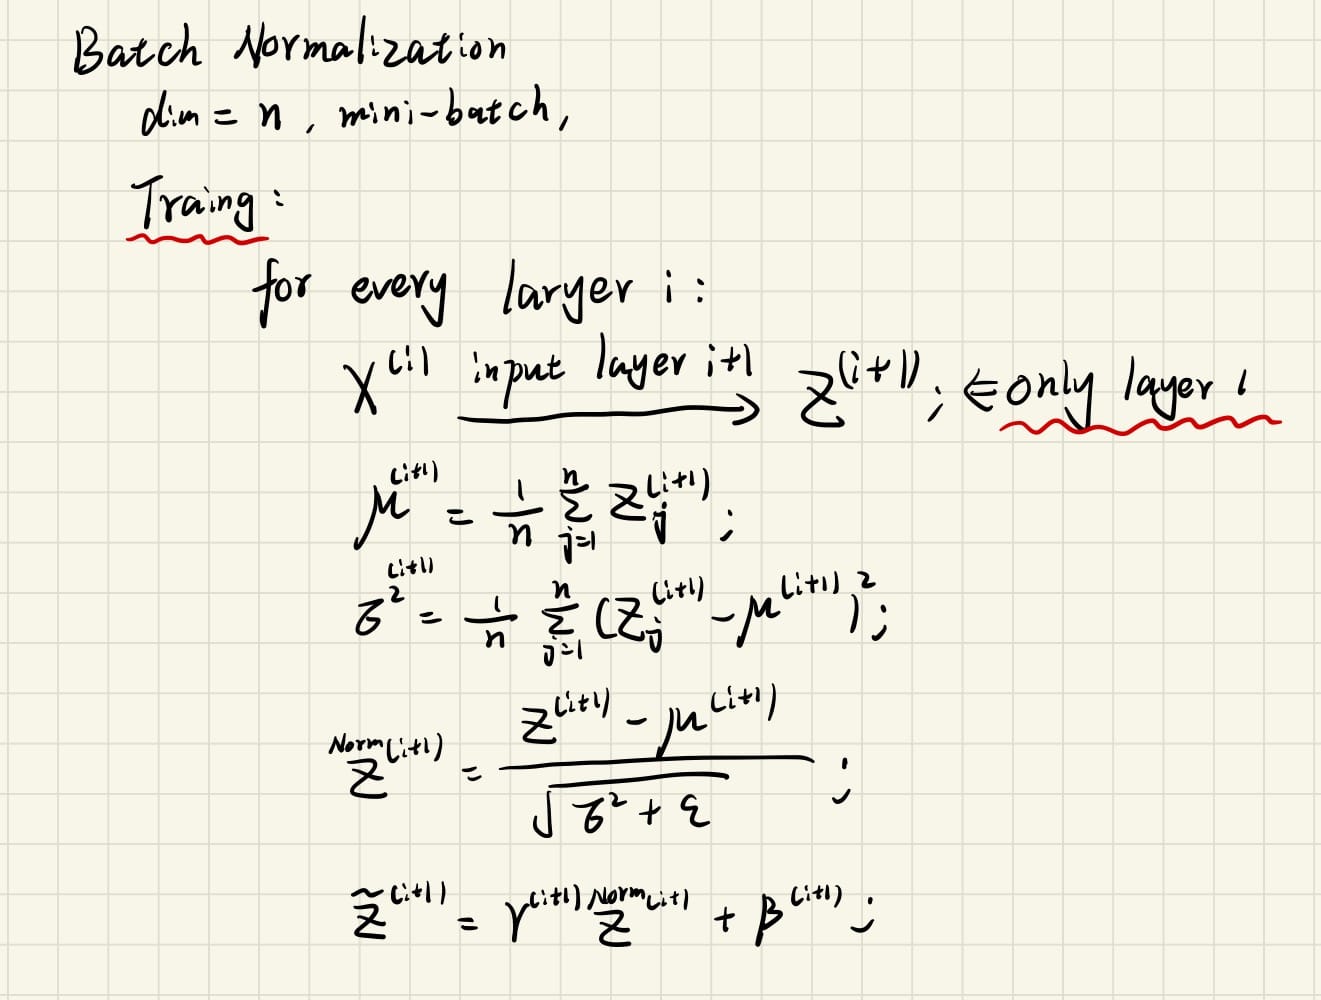 Batch Normalization
dim = n, mini-batch,
Traing:
for every laryer i:
X^(i) input layer i+1 → Z^(i+1); ⇐ only layer 1
μ^(i+1) = 1/n Σ_{j=1}^{n} Z_j^(i+1);
σ²^(i+1) = 1/n Σ_{j=1}^{n} (Z_j^(i+1) - μ^(i+1))²;
Z^Norm(i+1) = (Z^(i+1) - μ^(i+1)) / √(σ² + ε);
Z̃^(i+1) = γ^(i+1) Z^Norm(i+1) + β^(i+1);